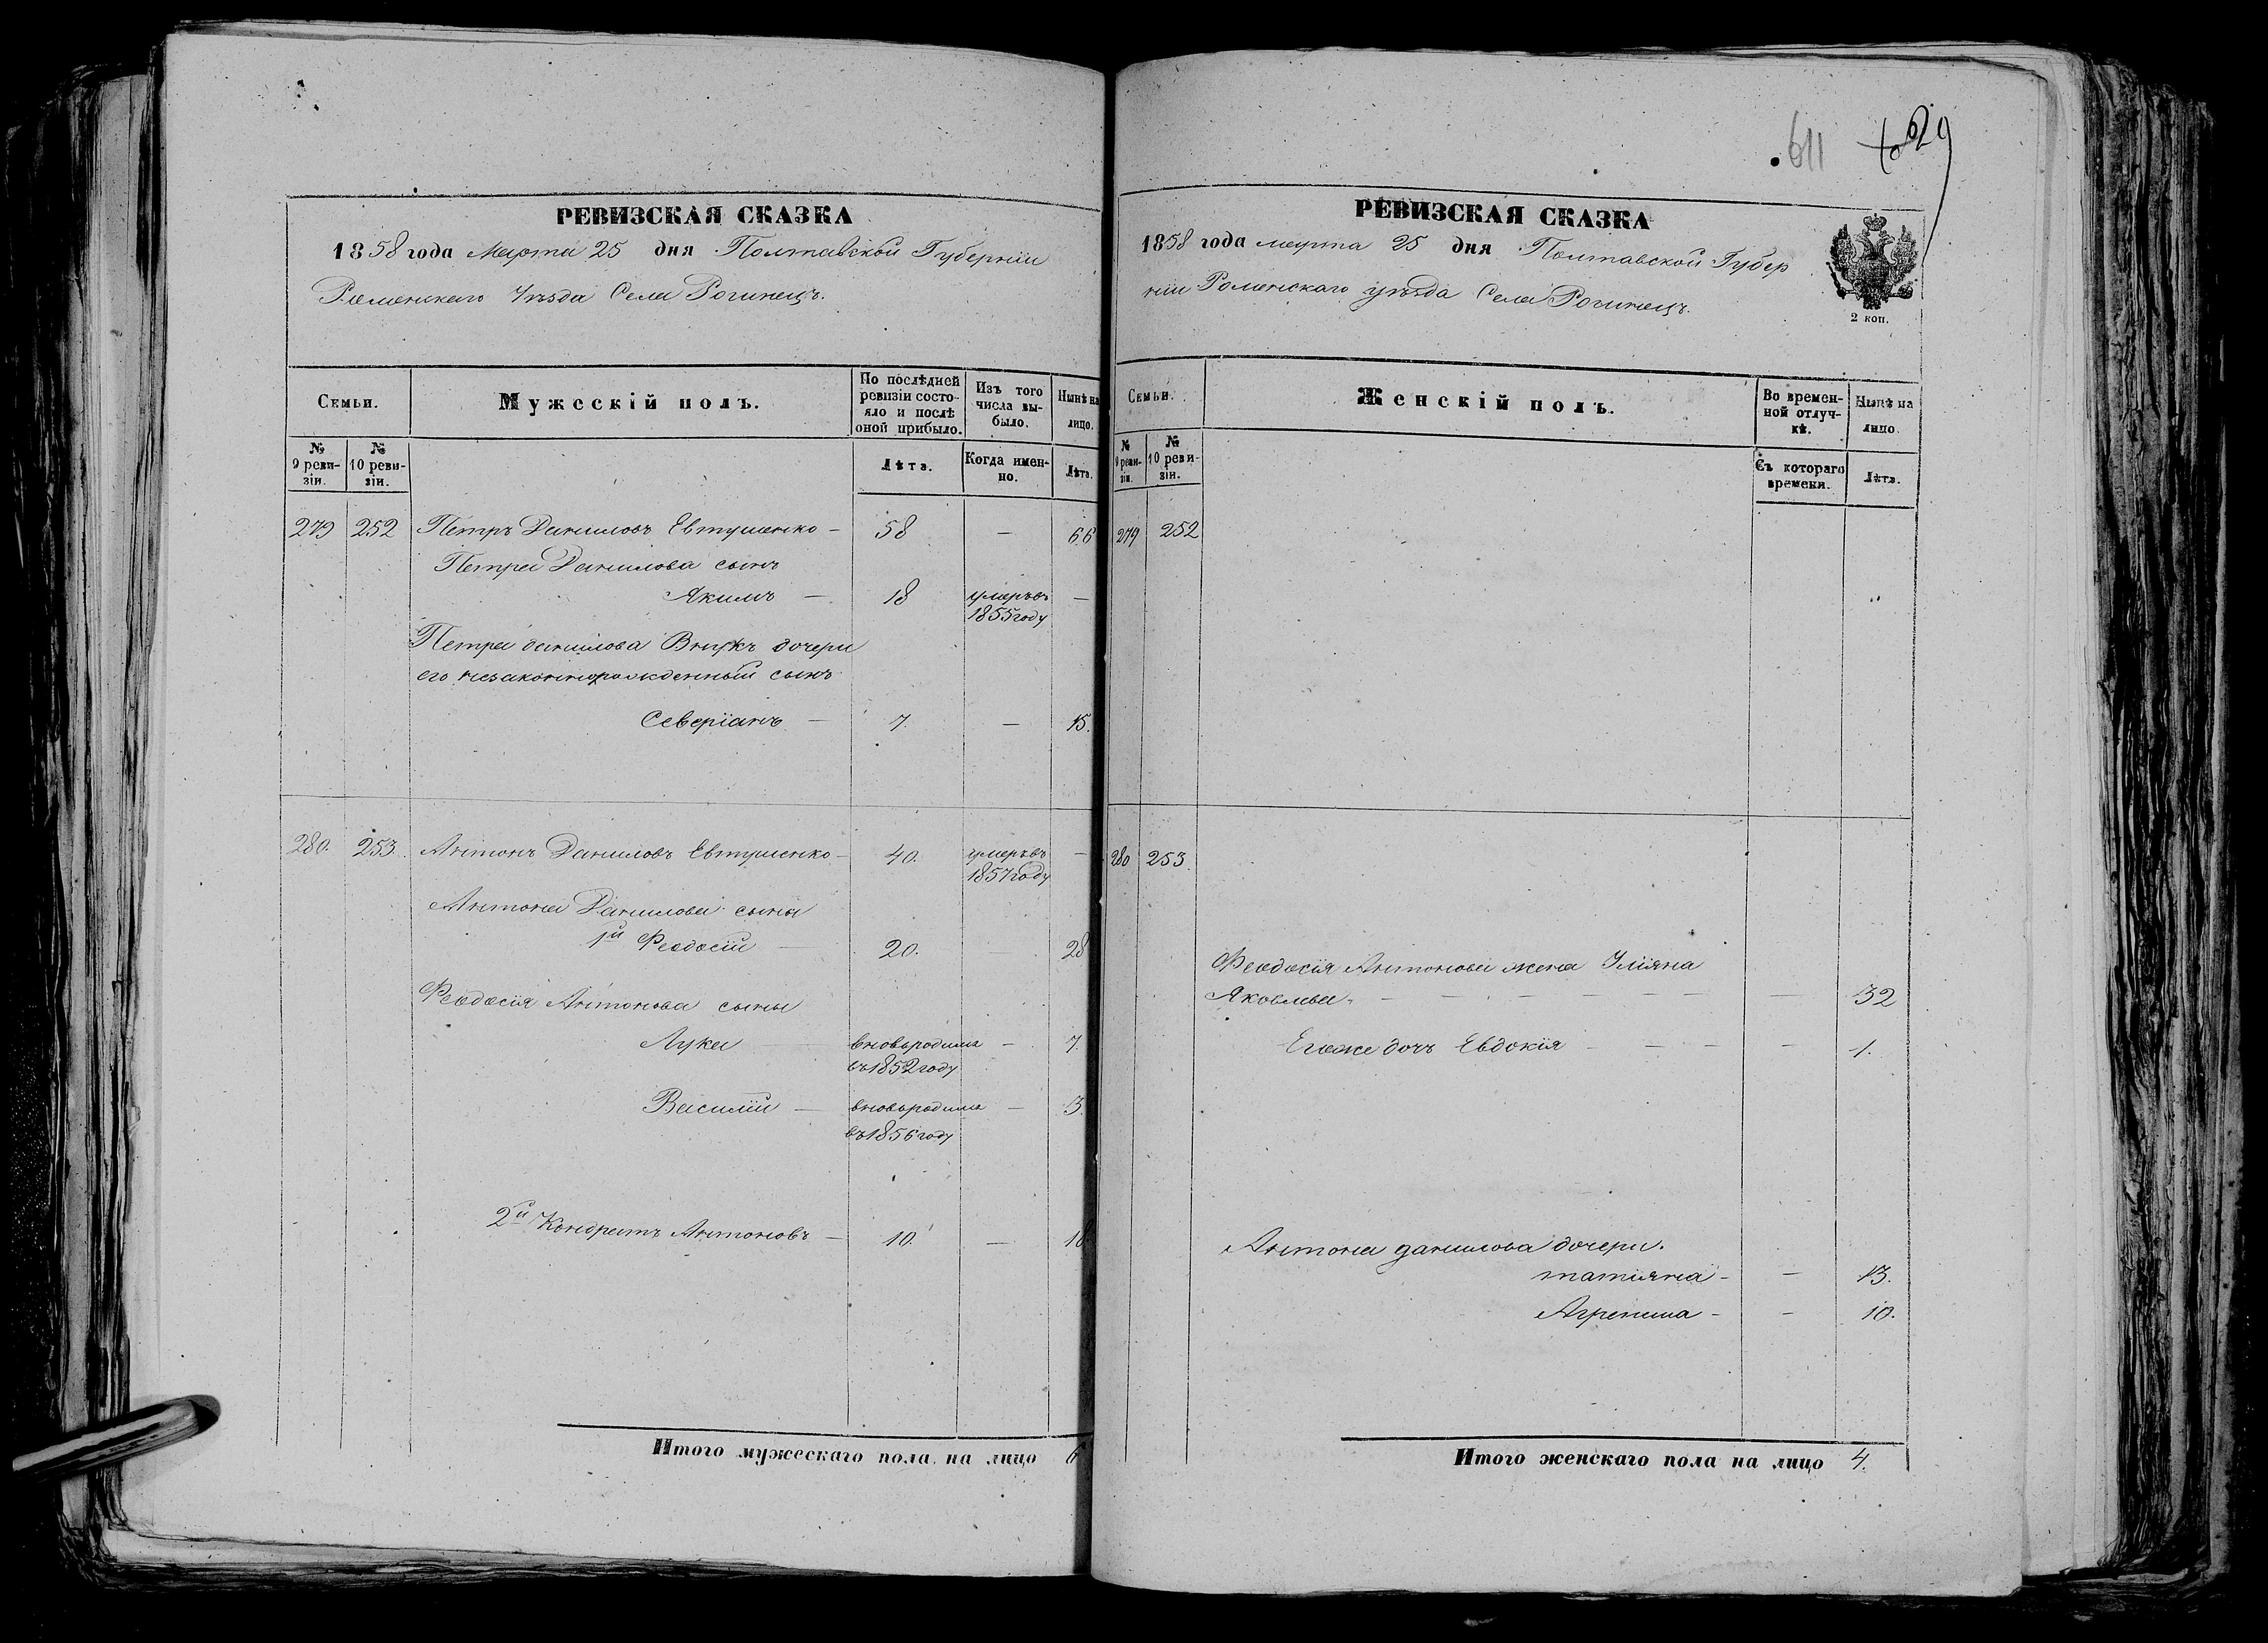 611 629
РЕВИЗСКАЯ СКАЗКА
1858 года Марта 25 дня Полтавской Губерніи
Роменскаго Уѣзда Села Рогинецъ.
Семьи.
Мужескій полъ.
По послѣдней ревизіи состояло и послѣ оной прибыло.
Изъ того числа выбыло.
Нынѣ на лицо.
№ 9 ревизіи.
№ 10 ревизіи.
Лѣта.
Когда именно.
Лѣта.
279 252 Петръ Даниловъ Евтушенко — 58 — 66
Петра Данилова сынъ
Якимъ — 18 умеръ въ —
1855 году
Петра данилова Внукъ дочери
его незаконнорожденный сынъ
Северіанъ — 7. — 15.
280. 253. Антонъ Даниловъ Евтушенко — 40. умеръ въ —
1857 году
Антона Данилова сыны
1й Феодосій — 20. — 28
Феодосія Антонова сыны
Лука — вновь родился — 7.
въ 1852 году
Василій — вновь родился — 3.
въ 1856 году
2й Кондратъ Антоновъ — 10. — 18
Итого мужескаго пола на лицо 6
РЕВИЗСКАЯ СКАЗКА
1858 года марта 25 дня Полтавской Губер
ніи Роменскаго уѣзда Села Рогинецъ.
2 коп.
Семьи.
Женскій полъ.
Во временной отлучкѣ.
Нынѣ на лицо.
№ 9 ревизіи.
№ 10 ревизіи.
Съ котораго времени.
Лѣта.
279 252
280 253.
Феодосія Антонова жена Уліяна
Яковлева — — 32
Егоже дочь Евдокія — — 1.
Антона данилова дочери.
татіяна — — 13.
Агрепина — — 10.
Итого женскаго пола на лицо 4.